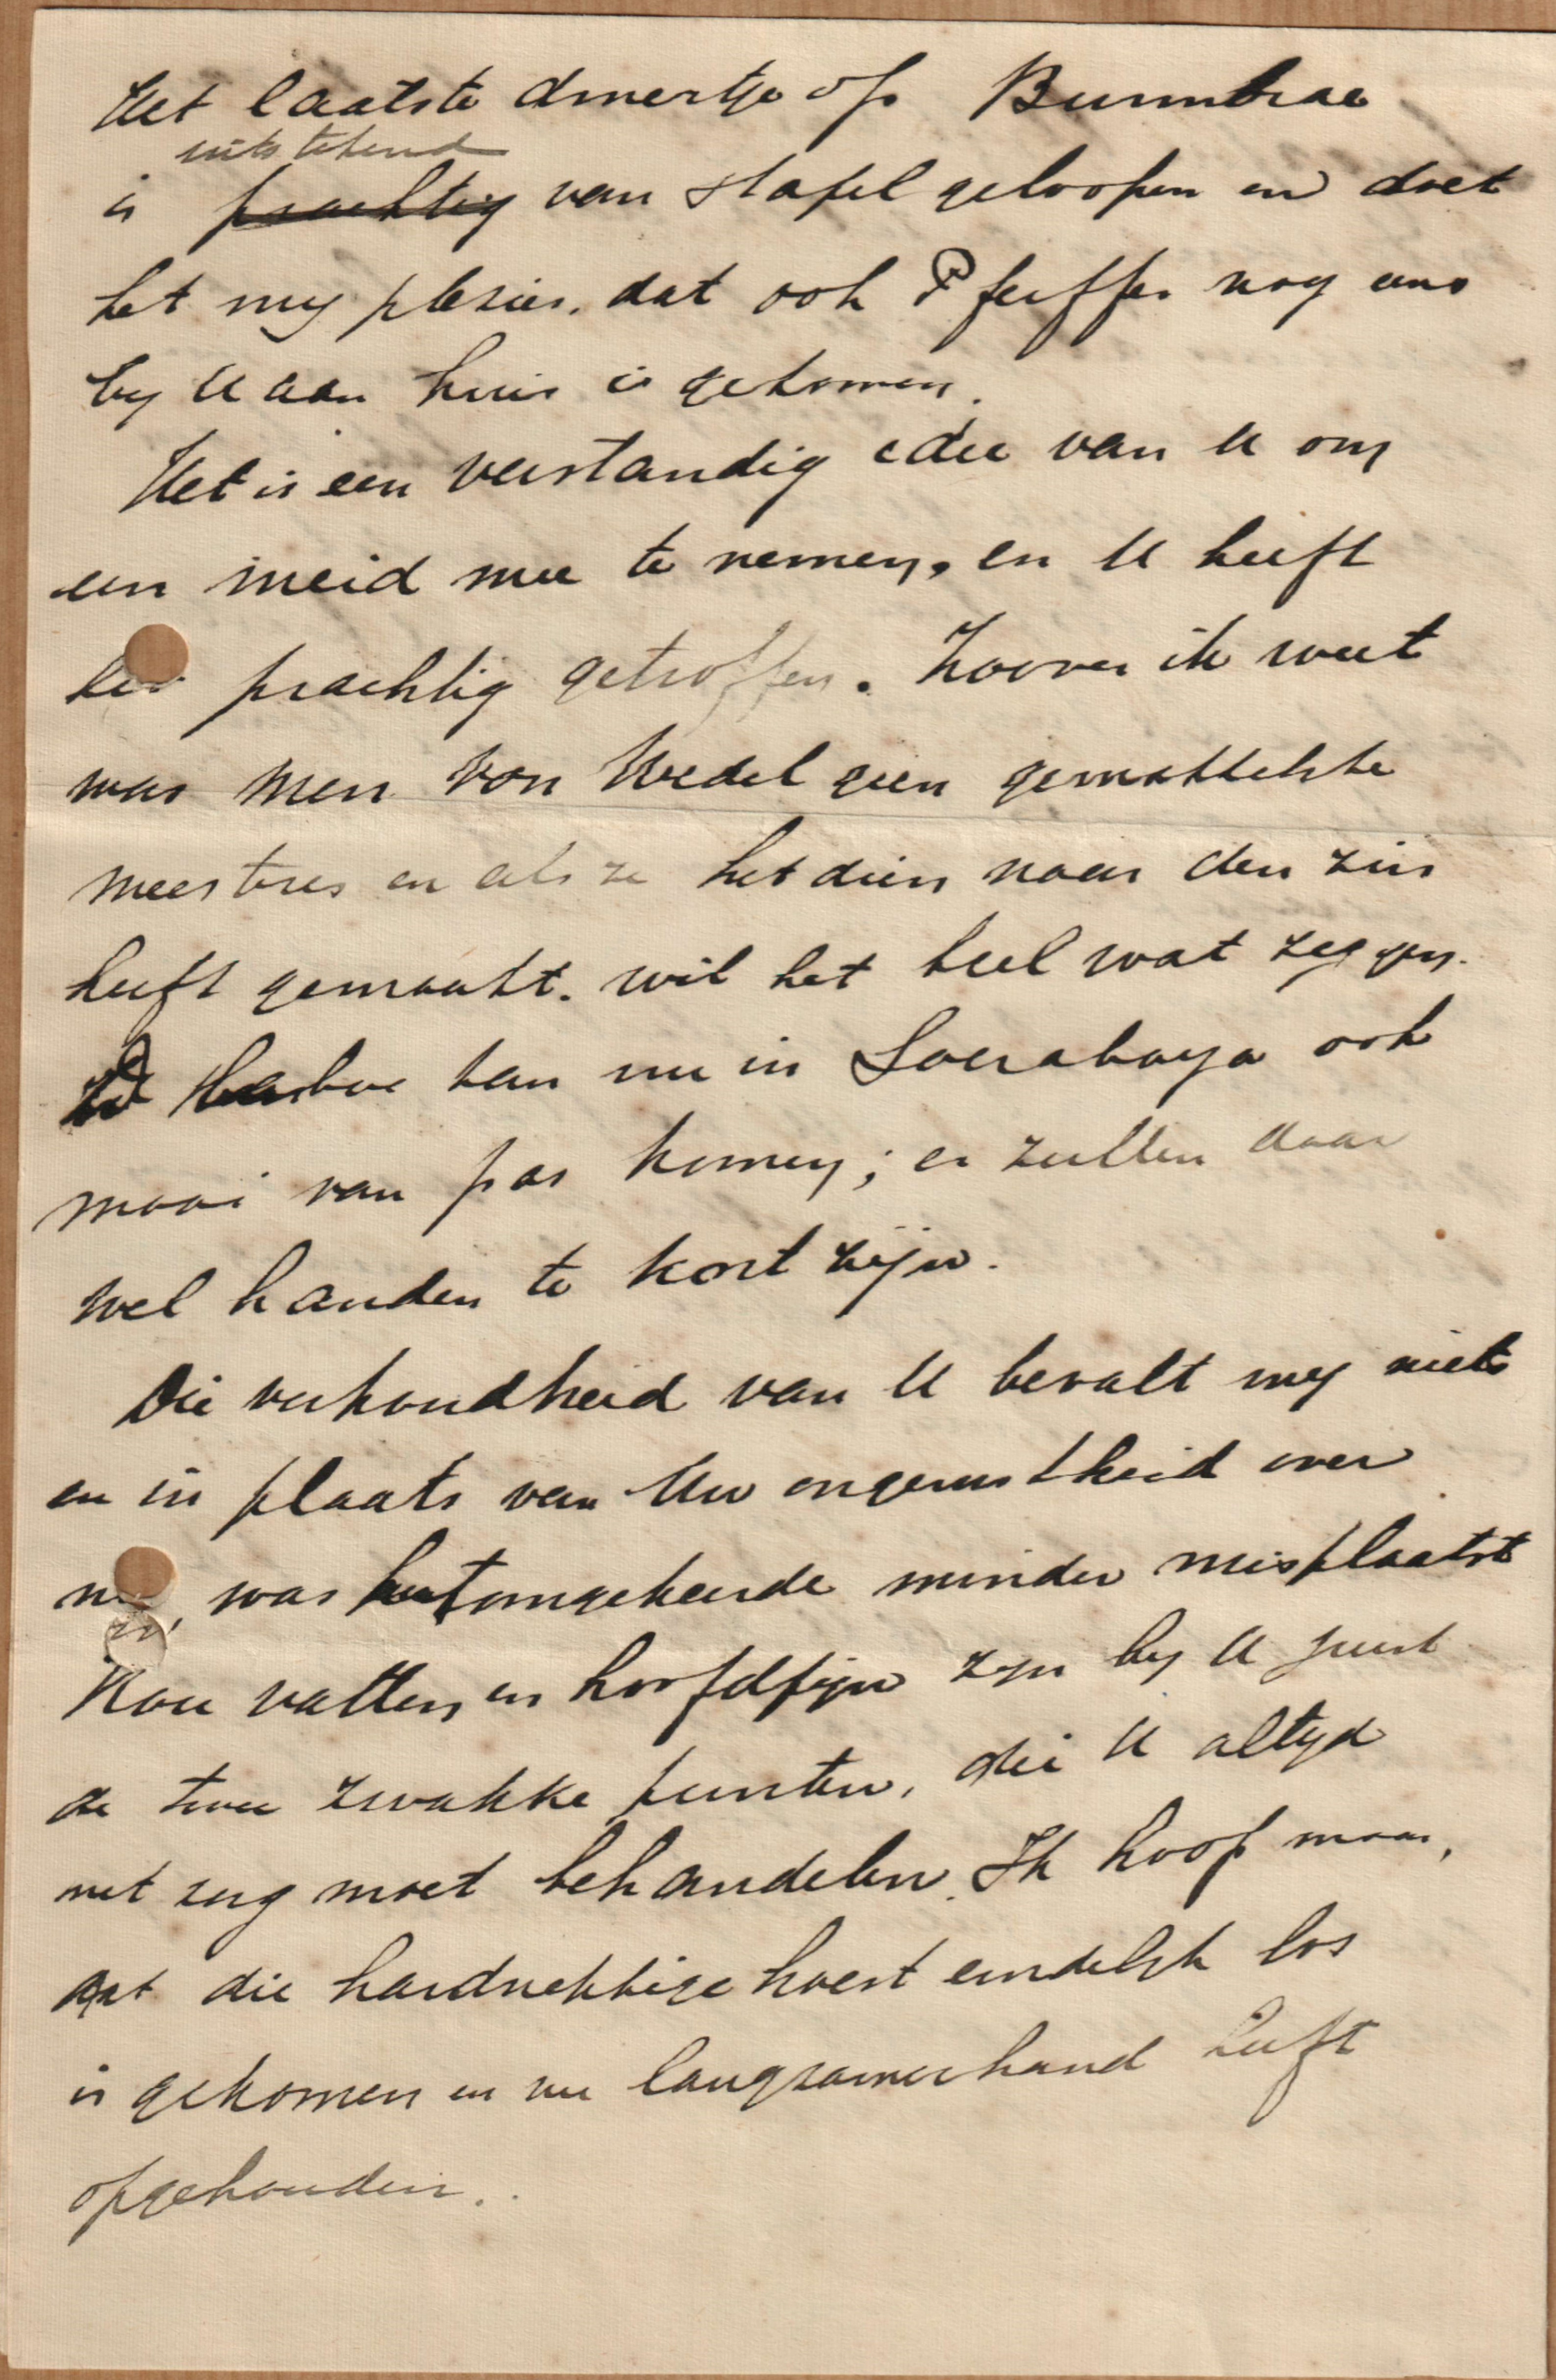 Het laatste dineertje op Burnbrae
uitstekend
is prachtig van stapel geloopen en doet
het mij plezier, dat ook Pfeiffer nog eens
bij U aan huis is gekomen.
Het is een verstandig idee van U om
een meid mee te nemen, en U heeft
het prachtig getroffen. Zoover ik weet
was Mevr von Wedel geen gemakkelijke
meesteres en als ze het dien naar den zin
heeft gemaakt, wil het heel wat zeggen.
baboe kan nu in Soerabaya ook
mooi van pas komen; er zullen daar
wel handen te kort zijn.
Die verkoudheid van U bevalt mij niets
en in plaats van Uw ongerustheid over
mij, was het omgekeerde minder misplaatst
Kou vatten en hoofdpijn zijn bij U juist
de twee zwakke punten, die U altijd
met zorg moet behandelen. Ik hoop maar,
dat die hardnekkige hoest eindelijk los
is gekomen en nu langzamerhand heeft
opgehouden.